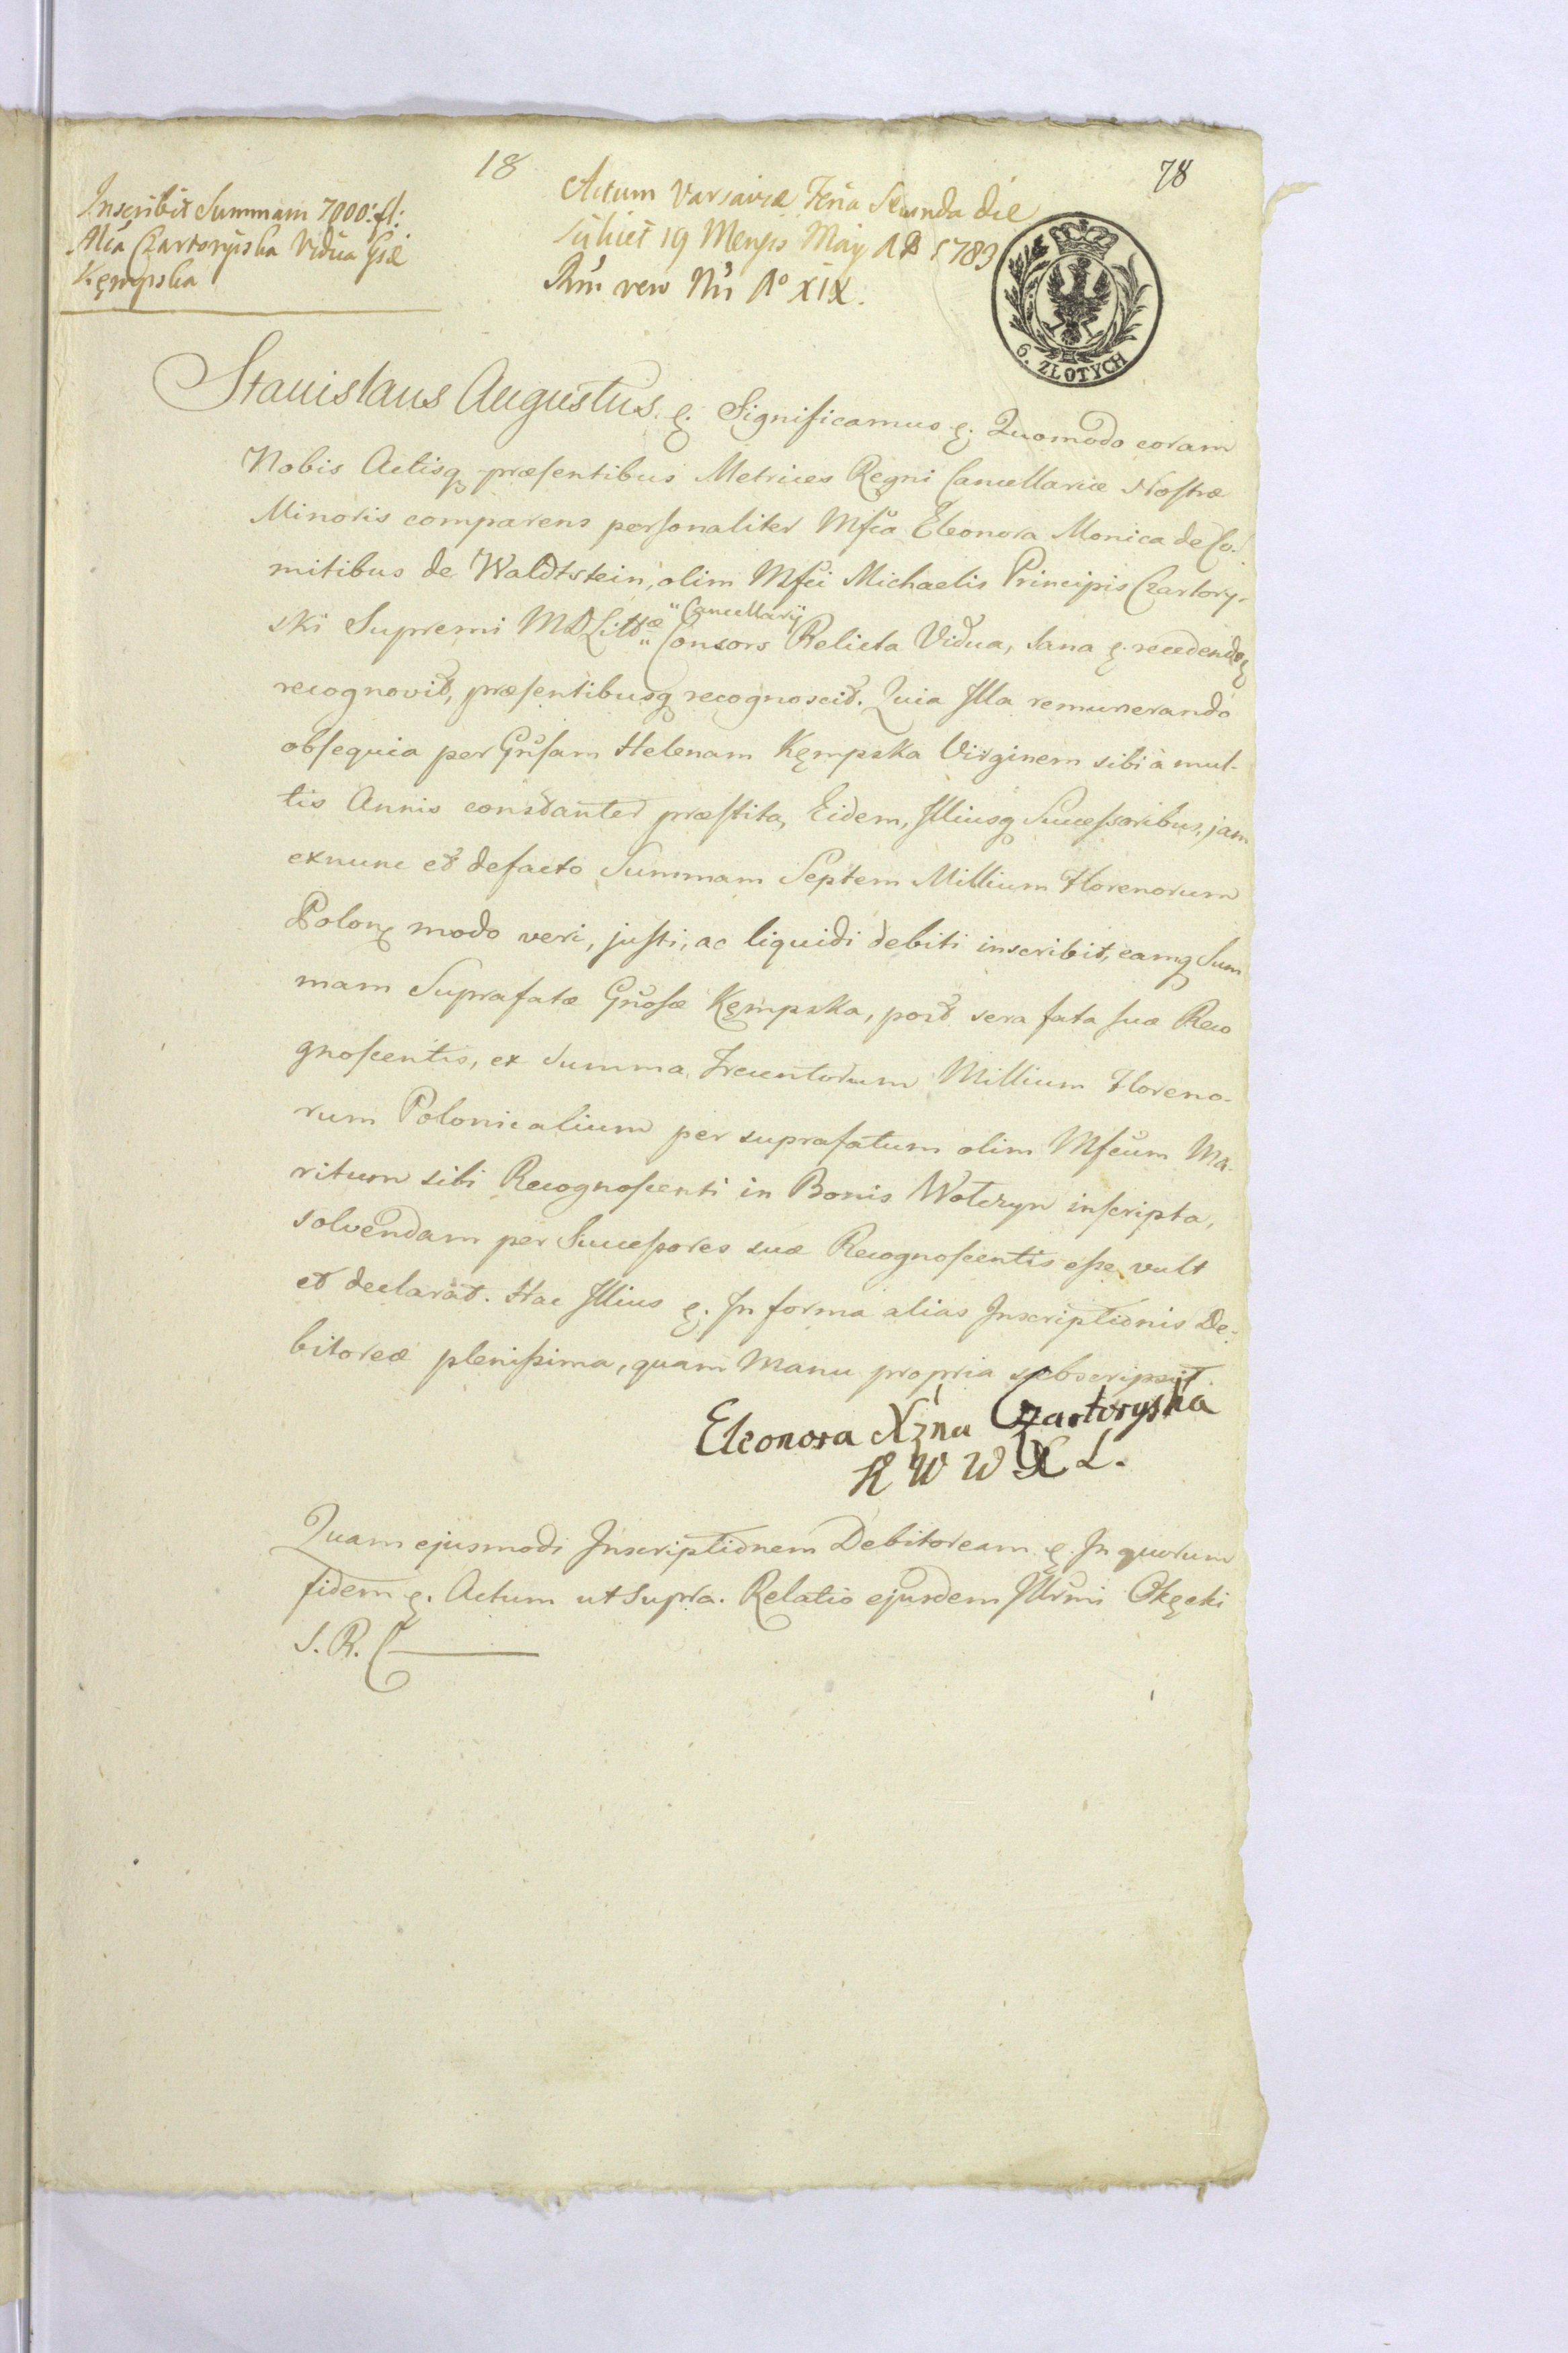 18
78
Inscribit Summam 7000: fl:
Mca Czartoryska Vidua Gsæ
Kęmpska
Actum Varsaviæ Feria Secunda die
scilicet 19 Mensis Maij AD 1783
Rni vero Nri Ao XIX.
6. ZŁOTYCH
Stanislaus Augustus. ę. Significamus ę. Quomodo coram
Nobis Actisq præsentibus Metrices Regni Cancellariæ Nostræ
Minoris comparens personaliter Mfca Eleonora Monica de Co-
mitibus de Waldtstein, olim Mfci Michaelis Principis Czartory-
"Cancellarij
ski Supremi MDLittæ " Consors Relicta Vidua, sana ę. recedendoq
recognovit, præsentibusq recognoscit. Quia Illa remunerando
obsequia per Gnsam Helenam Kęmpska Virginem sibi à mul-
tis Annis constanter præstita, Eidem, Illiusq Successoribus, jam
exnunc et defacto Summam Septem Millium Florenorum
Polonę modo veri, justi, ac liquidi debiti inscribit, eamq Sum
mam Suprafatæ Gnosæ Kęmpska, post sera fata suæ Reco
gnoscentis, ex Summa Trecentorum Millium Floreno-
rum Polonicalium per suprafatum olim Mfcum Ma-
ritum sibi Recognoscenti in Bonis Wołczyn inscripta,
solvendam per Successores suæ Recognoscentis esse vult
et declarat. Hac Illius ę. In forma alias Inscriptionis De-
bitoreæ plenissima, quam Manu propria subscripsit.
Eleonora Xżna Czartoryska
K W W X L.
Quam ejusmodi Inscriptionem Debitoream ę. In quorum
fidem ę. Actum ut Supra. Relatio ejusdem Illrmi Okęcki
S. R. C